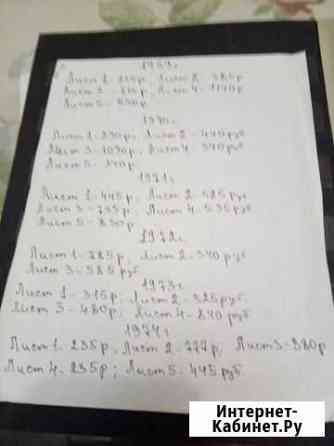 1969г.
Лист 1-215р, Лист 2-385р
Лист 3-510р, Лист 4-1140р
Лист 5-690р.
1970г.
Лист 1-290р, Лист 2-440руб
Лист 3-1090р, Лист 4-340руб
Лист 5-340р.
1971г.
Лист 1-445р, Лист 2-525руб
Лист 3-735р, Лист 4-535руб
Лист 5-830р.
1972г.
Лист 1-785р, Лист 2-340руб
Лист 3-585руб
1973г.
Лист 1-315р; Лист 2-325руб
Лист 3-480р; Лист 4-840руб
1974г.
Лист 1-235р; Лист 2-777р; Лист 3-380р
Лист 4-235р; Лист 5-445руб
Интернет-
Кабинет.Ру